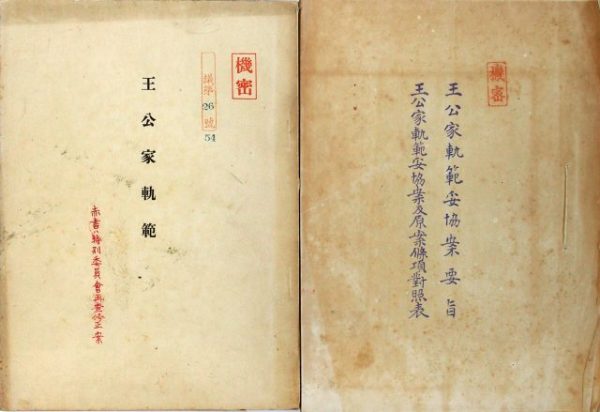 機密
議第26號
54
王公家軌範
赤書ハ特別委員會再修正案
機密
王公家軌範妥協案要旨
王公家軌範妥協案及原案條項對照表